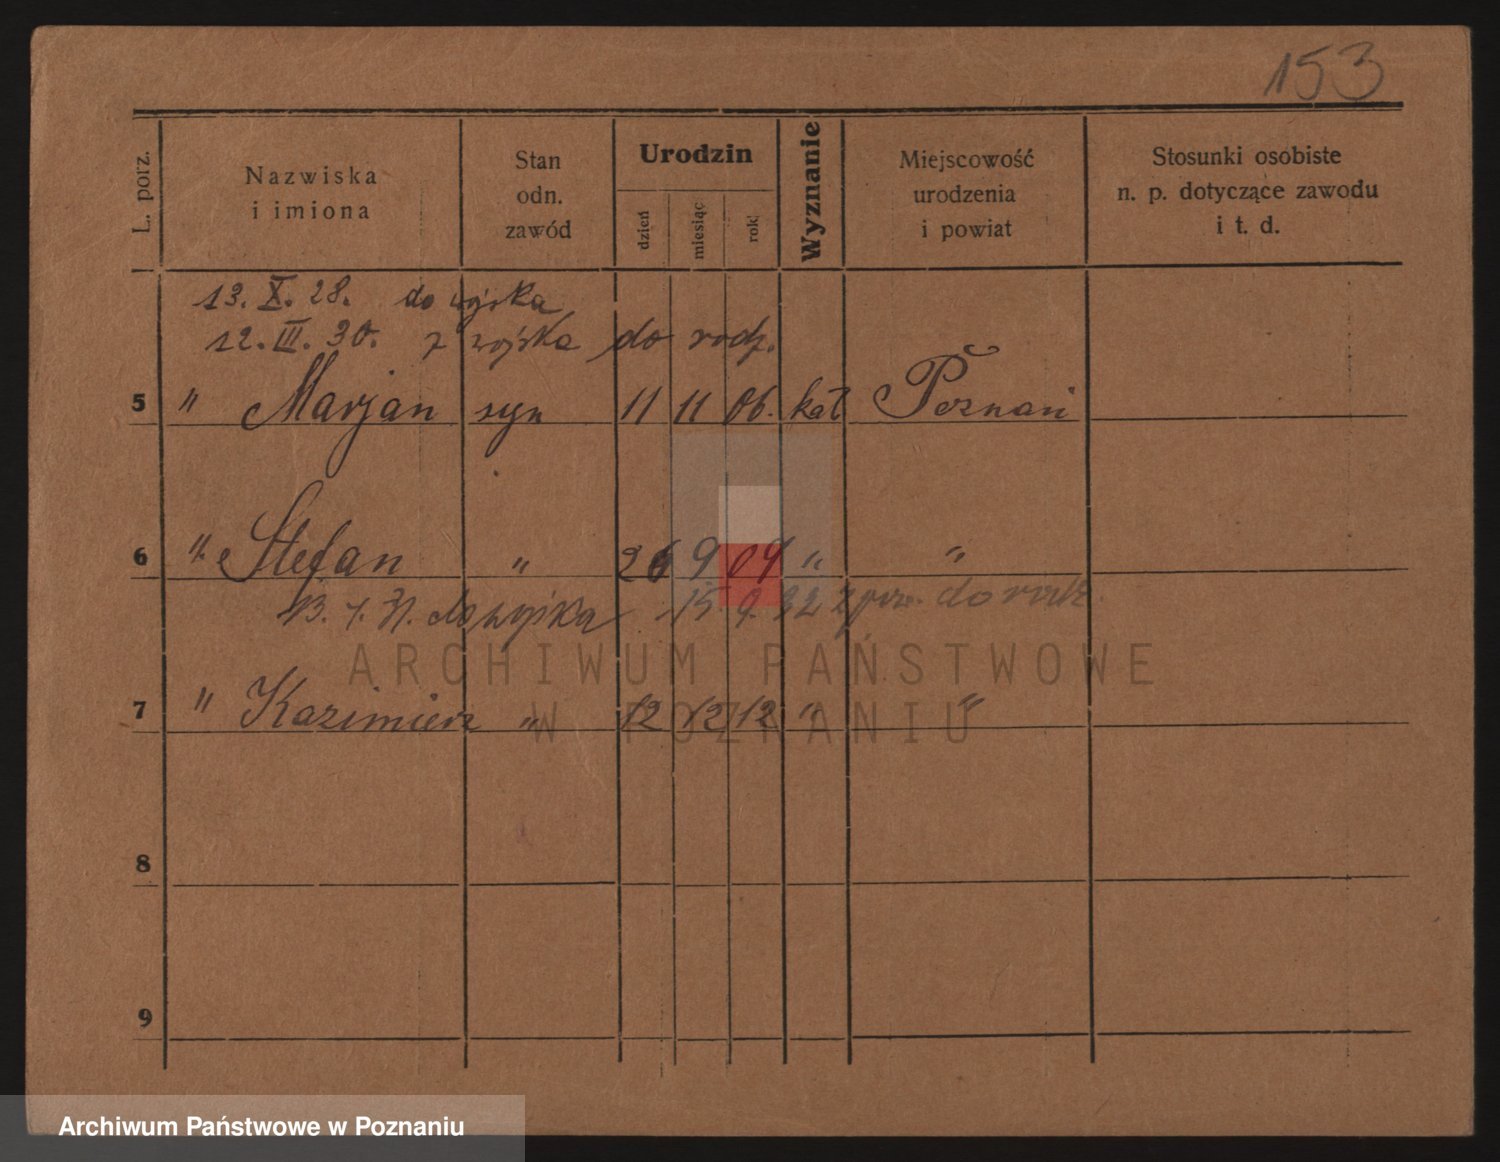 153
L. porz.
Nazwiska
i imiona
Stan
odn.
zawód
Urodzin
dzień
miesiąc
rok
Wyznanie
Miejscowość
urodzenia
i powiat
Stosunki osobiste
n. p. dotyczące zawodu
i t. d.
13. X. 28. do wojska
12. III. 30. z wojska do rodz.
5 " Marjan syn 11 11 06. kat Poznań
6 " Stefan " 26 9 09 " "
13. 31. do wojska 15 9. 32 z do
ARCHIWUM PAŃSTWOWE
7 " Kazimierz " 12 12 12 " "
W POZNANIU
8
9
Archiwum Państwowe w Poznaniu